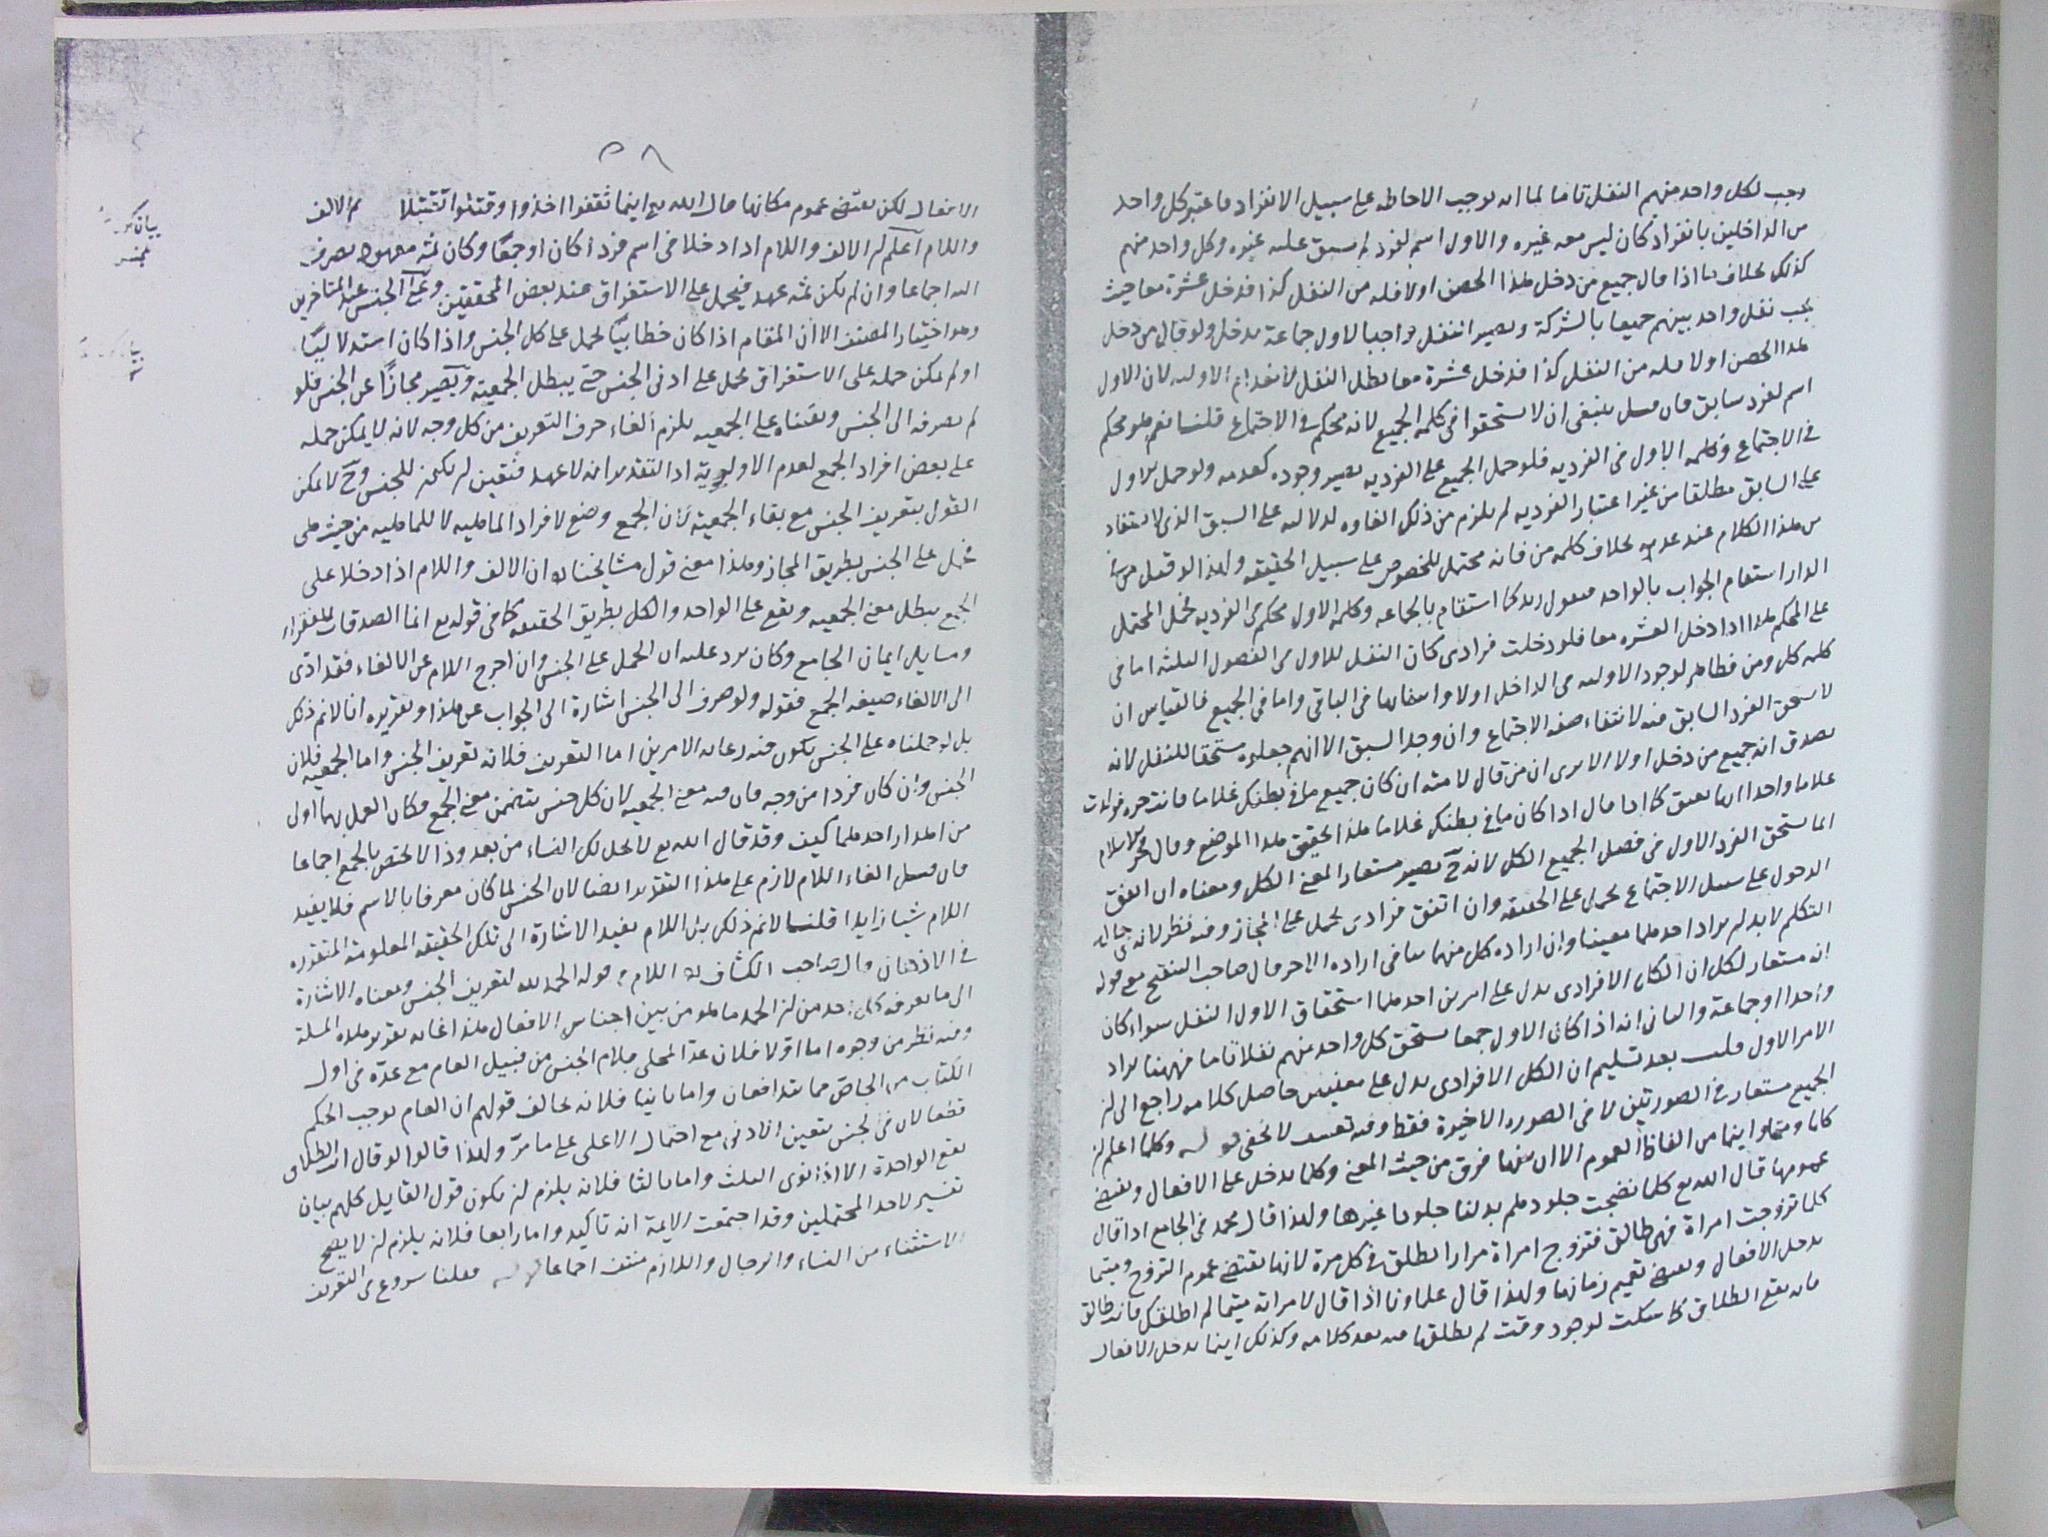 وجب لكل واحد منهم النفل تاما لما انه يوجب الاحاطه على سبيل الانفراد فاعتبر كل واحد
من الداخلين بانفراد كان ليس معه غيره والاول اسم لفرد لم يسبق عليه غيره وكل واحد منهم
كذلك بخلاف ما اذا قال جميع من دخل هذا الحصن اولا فله من النفل كذا فدخل عشرة معا حيث
يجب نفل واحد بينهم جميعا بالشركة ويصير النفل واجبا لاول جماعة يدخل ولو قال من دخل
هذا الحصن اولا فله من النفل كذا فدخل عشرة معا بطل النفل لانعدام الاوليه لان الاول
اسم لفرد سابق فان قيل ينبغى ان لا يستحقوا فى كلمة الجميع لانه محكم فى الاجتماع قلنا نعم هو محكم
فى الاجتماع وكلمه الاول فى الفرديه فلو حمل الجميع على الفرديه يصير وجوده كعدمه ولو حمل الاول
على السابق مطلقا من غير اعتبار الفرديه لم يلزم من ذلك الغاوه لدلالته على السبق الذى لا يستفاد
من هذا الكلام عند عدمه بخلاف كلمه من فانه محتمل للخصوص على سبيل الحقيقه ولهذا لو قيل من فى
الدار استقام الجواب بالواحد فيقول زيد كما استقام بالجماعه وكلمه الاول محكم فى الفرديه فحمل المحتمل
على المحكم هذا اذا دخل العشره معا فلو دخلت فرادى كان النفل للاول فى الفصول الثلثه اما فى
كلمه كل ومن فظاهر لوجود الاوليه فى الداخل اولا وانتفائها فى الباقى واما فى الجميع فالقياس ان
لا يستحق الفرد السابق فيه لانتفاء صفه الاجتماع وان وجد السبق الا انهم جعلوه مستحقا للنفل لانه
يصدق انه جميع من دخل اولا الا يرى ان من قال لامته ان كان جميع ما فى بطنك غلاما فانت حره فولدت
غلاما واحدا انها تعتق كما اذا قال اذا كان ما فى بطنك غلاما هذا تحقيق هذا الموضع وقال فخر الاسلام
انما يستحق الفرد الاول فى فصل الجميع الكل لانه ح يصير مستعارا لمعنى الكل ومعناه ان اتفق
الدخول على سبيل الاجتماع يحمل على الحقيقه وان اتفق فرادى يحمل على المجاز وفيه نظر لانه فى حال
التكلم لا بد ان يراد احدهما معينا وان اراده كل منهما ينافى اراده الاخر قال صاحب التنقيح مع قوله
انه مستعار لكل ان الكل الافرادى يدل على امرين احدهما استحقاق الاول النفل سواء كان
واحدا او جماعة والثانى انه اذا كان الاول جمعا يستحق كل واحد منهم نفلا تاما فههنا يراد
الامر الاول قلت بعد تسليم ان الكل الافرادى يدل على معنيين حاصل كلامه راجع الى ان
الجميع مستعار فى الصورتين لا فى الصوره الاخيرة فقط وفيه تعسف لا يخفى وكلما اعلم ان
كلما ومتما واينما من الفاظ العموم الا ان بينها فرق من حيث المعنى وكلما يدخل على الافعال ويقتضى
عمومها قال الله تع كلما نضجت جلودهم بدلنا جلودا غيرها ولهذا قال محمد فى الجامع اذا قال
كلما تزوجت امراة فهى طالق فتزوج امراة مرارا تطلق فى كل مرة لانها تقتضى عموم التزوج ومتما
يدخل الافعال ويقتضى تعميم زمانها ولهذا قال علماونا اذا قال لامراته متيما لم اطلقك فانت طالق
فانه يقع الطلاق كما سكت لوجود وقت لم يطلقها فيه بعد كلامه وكذلك اينما يدخل الافعال
٥٨
الافعال لكن يقتضى عموم مكانها قال الله تع اينما ثقفوا اخذوا وقتلوا تقتيلا ثم الالف
واللام اعلم ان الالف واللام اذا دخلا فى اسم فردا كان او جمعا وكان ثمه معهود يصرف
اليه اجماعا وان لم يكن ثمه عهد فيحمل على الاستغراق عند بعض المحققين وعلى الجنس عند المتاخرين
وهو اختيار المصنف الا ان المقام اذا كان خطابيا يحمل على كل الجنس واذا كان استدلاليا
او لم يمكن حمله على الاستغراق يحمل على ادنى الجنس حتى يبطل الجمعيه ويصير مجازا عن الجنس فلو
لم نصرفه الى الجنس وبقيناه على الجمعيه يلزم الغاء حرف التعريف من كل وجه لانه لا يمكن حمله
على بعض افراد الجمع لعدم الاولوية اذ التقدير انه لا عهد فتعين ان يكون للجنس وح لا يمكن
القول بتعريف الجنس مع بقاء الجمعية لان الجمع وضع لافراد الماهيه لا للماهيه من حيث هى
فحمل على الجنس بطريق المجاز وهذا معنى قول مشايخنا ان الالف واللام اذا دخلا على
الجمع يبطل معنى الجمعيه ويقع على الواحد والكل بطريق الحقيقه كما فى قوله تع انما الصدقات للفقراء
ومسايل ايمان الجامع وكان يرد عليه ان الحمل على الجنس وان اخرج اللام عن الالغاء فقد ادى
الى الالغاء صيغه الجمع فقوله ولو صرف الى الجنس اشارة الى الجواب عن هذا وتقريره انا لانم ذلك
بل لو حملناه على الجنس يكون فيه رعايه الامرين اما التعريف فلانه تعريف الجنس واما الجمعيه فلان
الجنس وان كان فردا من وجه فان فيه معنى الجمعيه لان كل جنس يتضمن معنى الجمع فكان العمل بهما اولى
من اهدار احدهما كيف وقد قال الله تع لا يحل لك النساء من بعد وذا لا يختص بالجمع اجماعا
فان قيل الغاء اللام لازم على هذا التقدير ايضا لان الجنس لما كان معرفا بالاسم فلا يفيد
اللام شيا زايدا قلنا لانم ذلك بل اللام يفيد الاشارة الى تلك الحقيقه المعلومة المتقرره
فى الاذهان قال صاحب الكشاف اللام فى قوله الحمد لله لتعريف الجنس ومعناه الاشارة
الى ما يعرفه كل احد من ان الحمد ما هو من بين اجناس الافعال هذا غايه تقرير هذه المسلة
وفيه نظر من وجوه اما اولا فلان عد المحلى بلام الجنس من قبيل العام مع عده فى اول
الكتاب من الخاص مما يتدافعان واما ثانيا فلانه يخالف قولهم ان العام يوجب الحكم
قطعا لان فى الجنس يتعين الادنى مع احتمال الاعلى على ما مر ولهذا قالوا لو قال انت الطلاق
يقع الواحدة الا اذا نوى الثلث واما ثالثا فلانه يلزم ان يكون قول القايل كلهم بيان
تفسير لاحد المحتملين وقد اجتمعت الايمة انه تاكيد واما رابعا فلانه يلزم ان لا يصح
الاستثناء من النساء والرجال واللازم منتف اجماعا فعلنا شروع فى التعريف